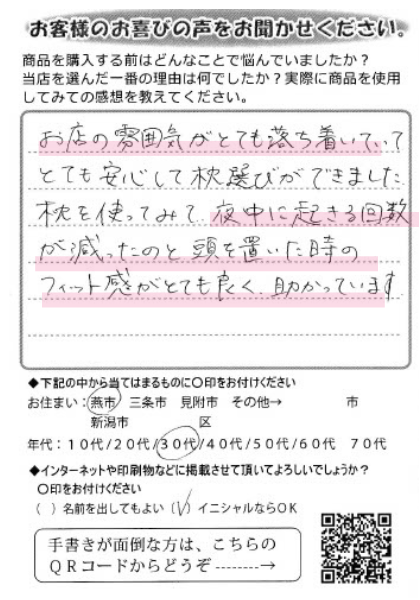 お客様のお喜びの声をお聞かせください。
商品を購入する前はどんなことで悩んでいましたか？
当店を選んだ一番の理由は何でしたか？実際に商品を使用
してみての感想を教えてください。
お店の雰囲気がとても落ち着いていって
とても安心して枕選びができました
枕を使ってみて、夜中に起きる回数
が減ったのと頭を置いた時の
フィット感がとても良く、助かっています
◆下記の中から当てはまるものに〇印をお付けください
お住まい：燕市 三条市 見附市 その他→ 市
新潟市 区
年代：10代/20代/30代/40代/50代/60代 70代
◆インターネットや印刷物などに掲載させて頂いてよろしいでしょうか？
〇印をお付けください
( )名前を出してもよい (✓)イニシャルならOK
手書きが面倒な方は、こちらの
QRコードからどうぞ--------→